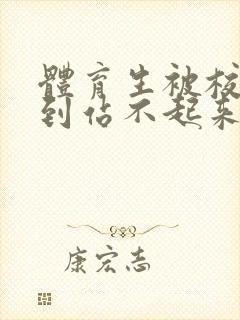 體育生被校
到佔不起来
康宏志